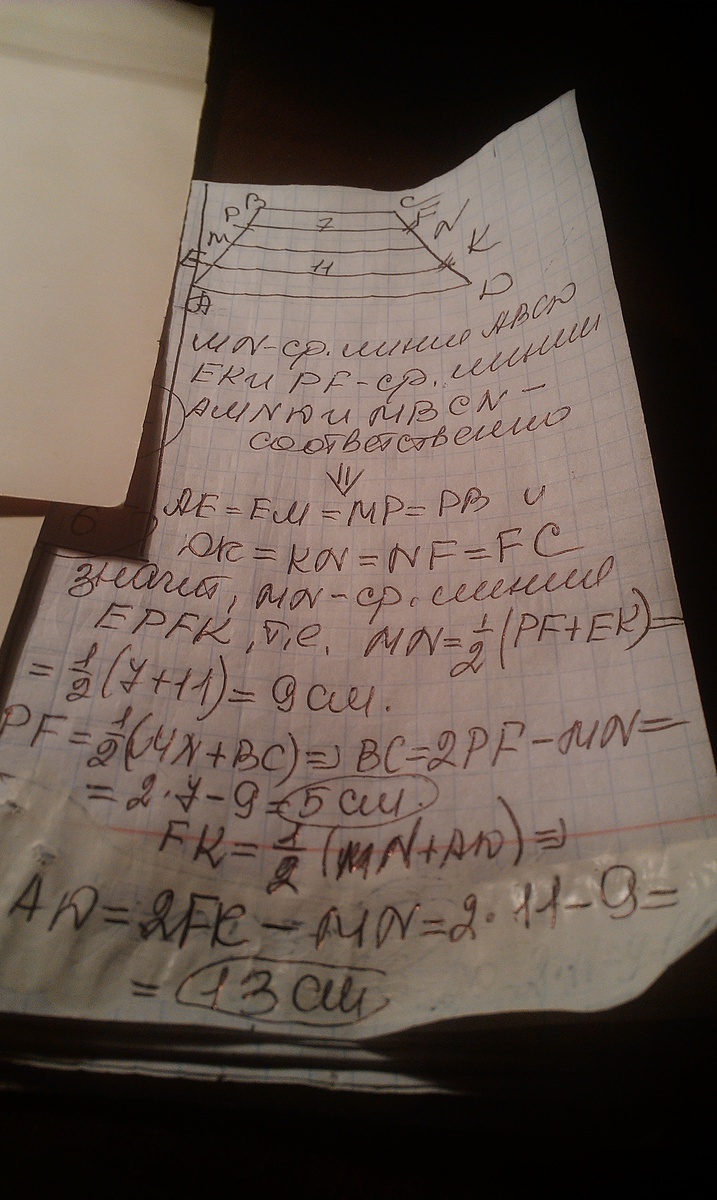 B C
P 7 F
M N
E 11 K
A D
MN-ср. линия ABCD
EK и PF-ср. линии
AMND и MBCN -
соответственно
⇓
AE = EM = MP = PB и
DK = KN = NF = FC
значит, MN-ср. линия
EPFK, т.е. MN = 1/2 (PF + EK) =
= 1/2 (7 + 11) = 9 см.
PF = 1/2 (MN + BC) ⇒ BC = 2PF - MN =
= 2 · 7 - 9 = 5 см.
EK = 1/2 (MN + AD) ⇒
AD = 2EK - MN = 2 · 11 - 9 =
= 13 см